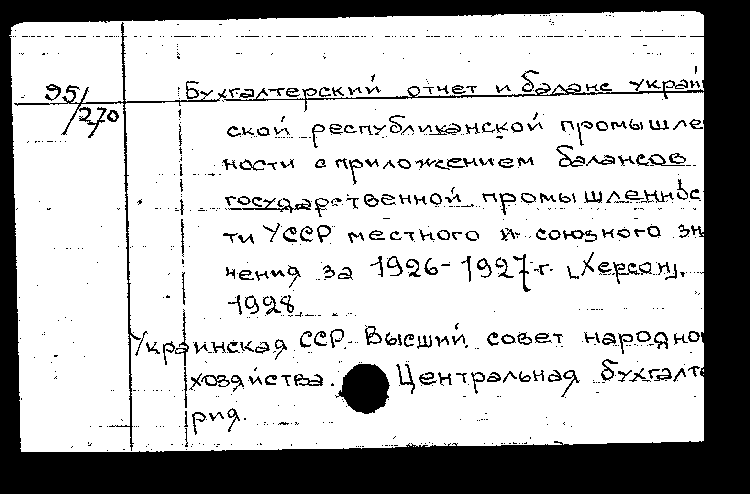 95/270
Бухгалтерский отчет и баланс украин
ской республиканской промышлен
ности с приложением балансов
государственной промышленнос
ти УССР местного и союзного зна
чения за 1926-1927 г. [Херсон],
1928.
Украинская ССР. Высший совет народног
хозяйства. Центральная бухгалте
рия.